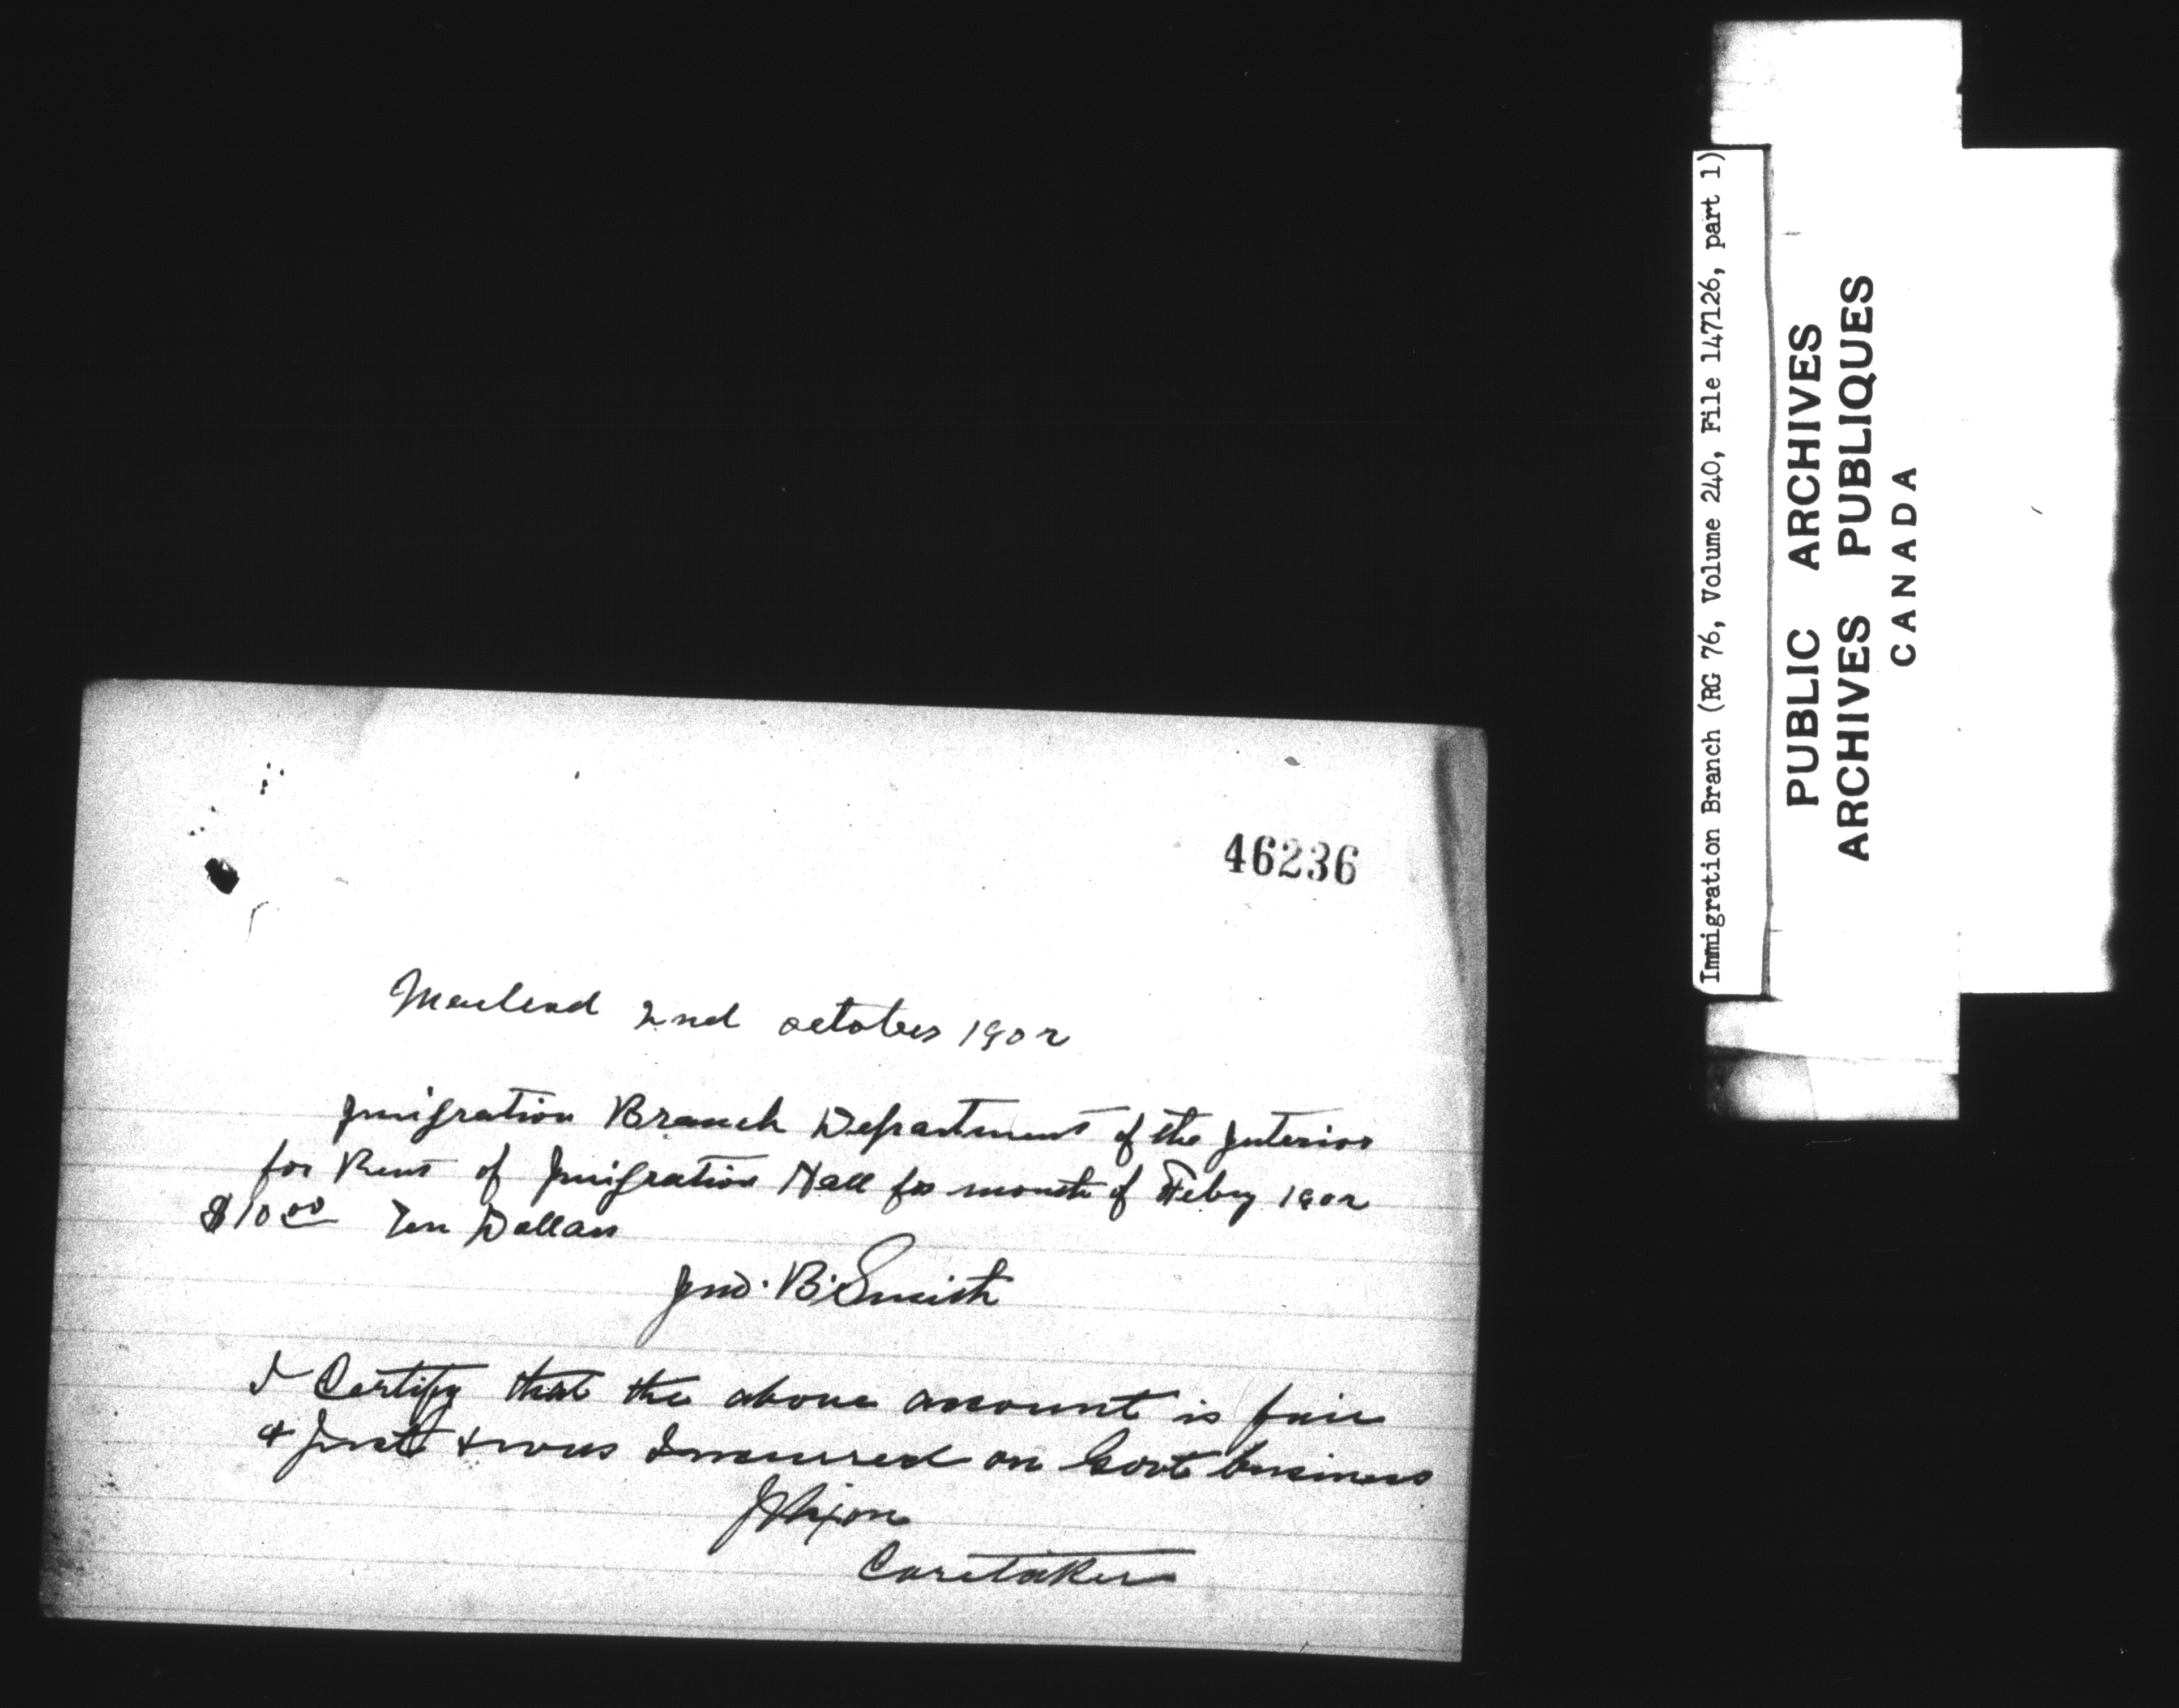 46236
Macleod 2nd october 1902
Jmigration Branch Department of the Jnterior
for Rent of Jmigration Hall for month of Febry 1902
$10.00 Ten Dollars
Jno. B. Smith
I Certify that the above account is fair
& just & was Incurred on Govt business
J Nixon
Caretaker
Immigration Branch (RG 76, Volume 240, File 147126, part 1)
PUBLIC ARCHIVES
ARCHIVES PUBLIQUES
CANADA